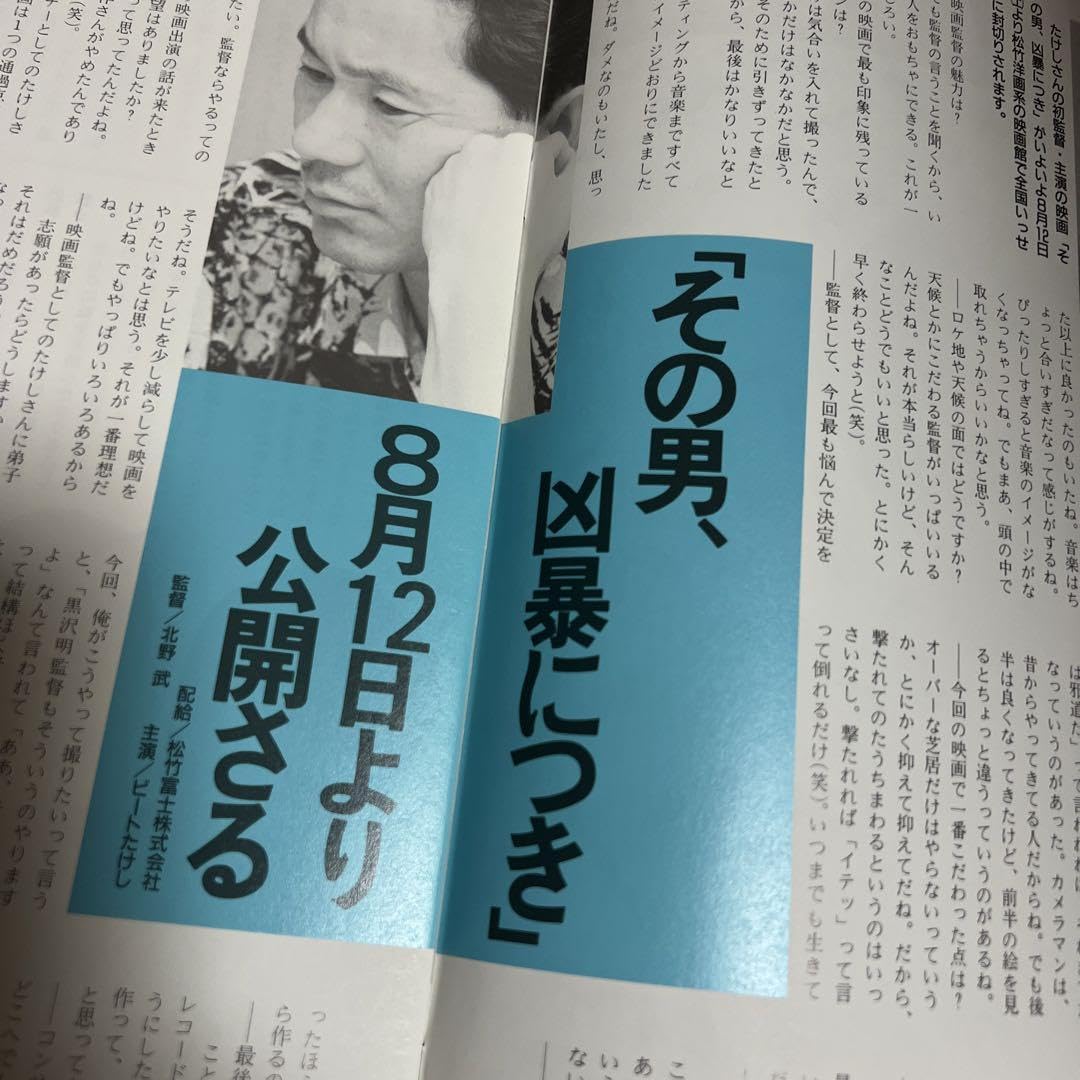 たけしさんの初監督・主演の映画「そ
の男、凶暴につき」がいよいよ8月12日
より松竹洋画系の映画館で全国いっせ
に封切りされます。
映画監督の魅力は?
も監督の言うことを聞くから、い
人をおもちゃにできる。これが一
ろい。
の映画で最も印象に残っている
ンは?
は気合いを入れて撮ったんで、
かだけはなかなかだと思う。
そのために引きずってきたと
から、最後はかなりいいなと
ティングから音楽まですべて
イメージどおりにできました
だね。ダメなのもいたし、思っ
た以上に良かったのもいたね。音楽はち
ょっと合いすぎだなって感じがするね。
ぴったりしすぎると音楽のイメージがな
くなっちゃってね。でもまあ、頭の中で
取れちゃうからいいかなと思う。
――ロケ地や天候の面ではどうですか?
天候とかにこだわる監督がいっぱいいる
んだよね。それが本当らしいけど、そん
なことどうでもいいと思った。とにかく
早く終わらせようと(笑)。
――監督として、今回最も悩んで決定を
は邪道だ」って言われ
なっていうのがあった。カメラマンは、
昔からやってきてる人だからね。でも後
半は良くなってきたけど、前半の絵を見
るとちょっと違うっていうのがあるね。
――今回の映画で一番こだわった点は?
オーバーな芝居だけはやらないっていう
か、とにかく抑えて抑えてだね。だから、
撃たれてのたうちまわるというのはいっ
さいなし。撃たれれば「イテッ」って言
って倒れるだけ(笑)。いつまでも生きて
「その男、
凶暴につき」
8月12日より
公開さる
配給/松竹富士株式会社
監督/北野 武
主演/ビートたけし
たい。監督ならやるっての
映画出演の話が来たとき
望はありましたか?
って思ってたんだよね。
作さんがやめたんであり
(笑)。
チーとしてのたけしさ
画は1つの通過点
そうだね。テレビを少し減らして映画を
やりたいなとは思う。それが一番理想だ
けどね。でもやっぱりいろいろあるから
ね。
――映画監督としてのたけしさんに弟子
志願があったらどうしますか
それはだめだろう
今回、俺がこうやって撮りたいって言う
と、「黒沢明監督もそういうのやります
よ」なんて言われて「ああ、
って結構ほ
ったほ
ら作るの
――最後
こと
レコード
うにした
作って、
と思って
――コン
どこへで